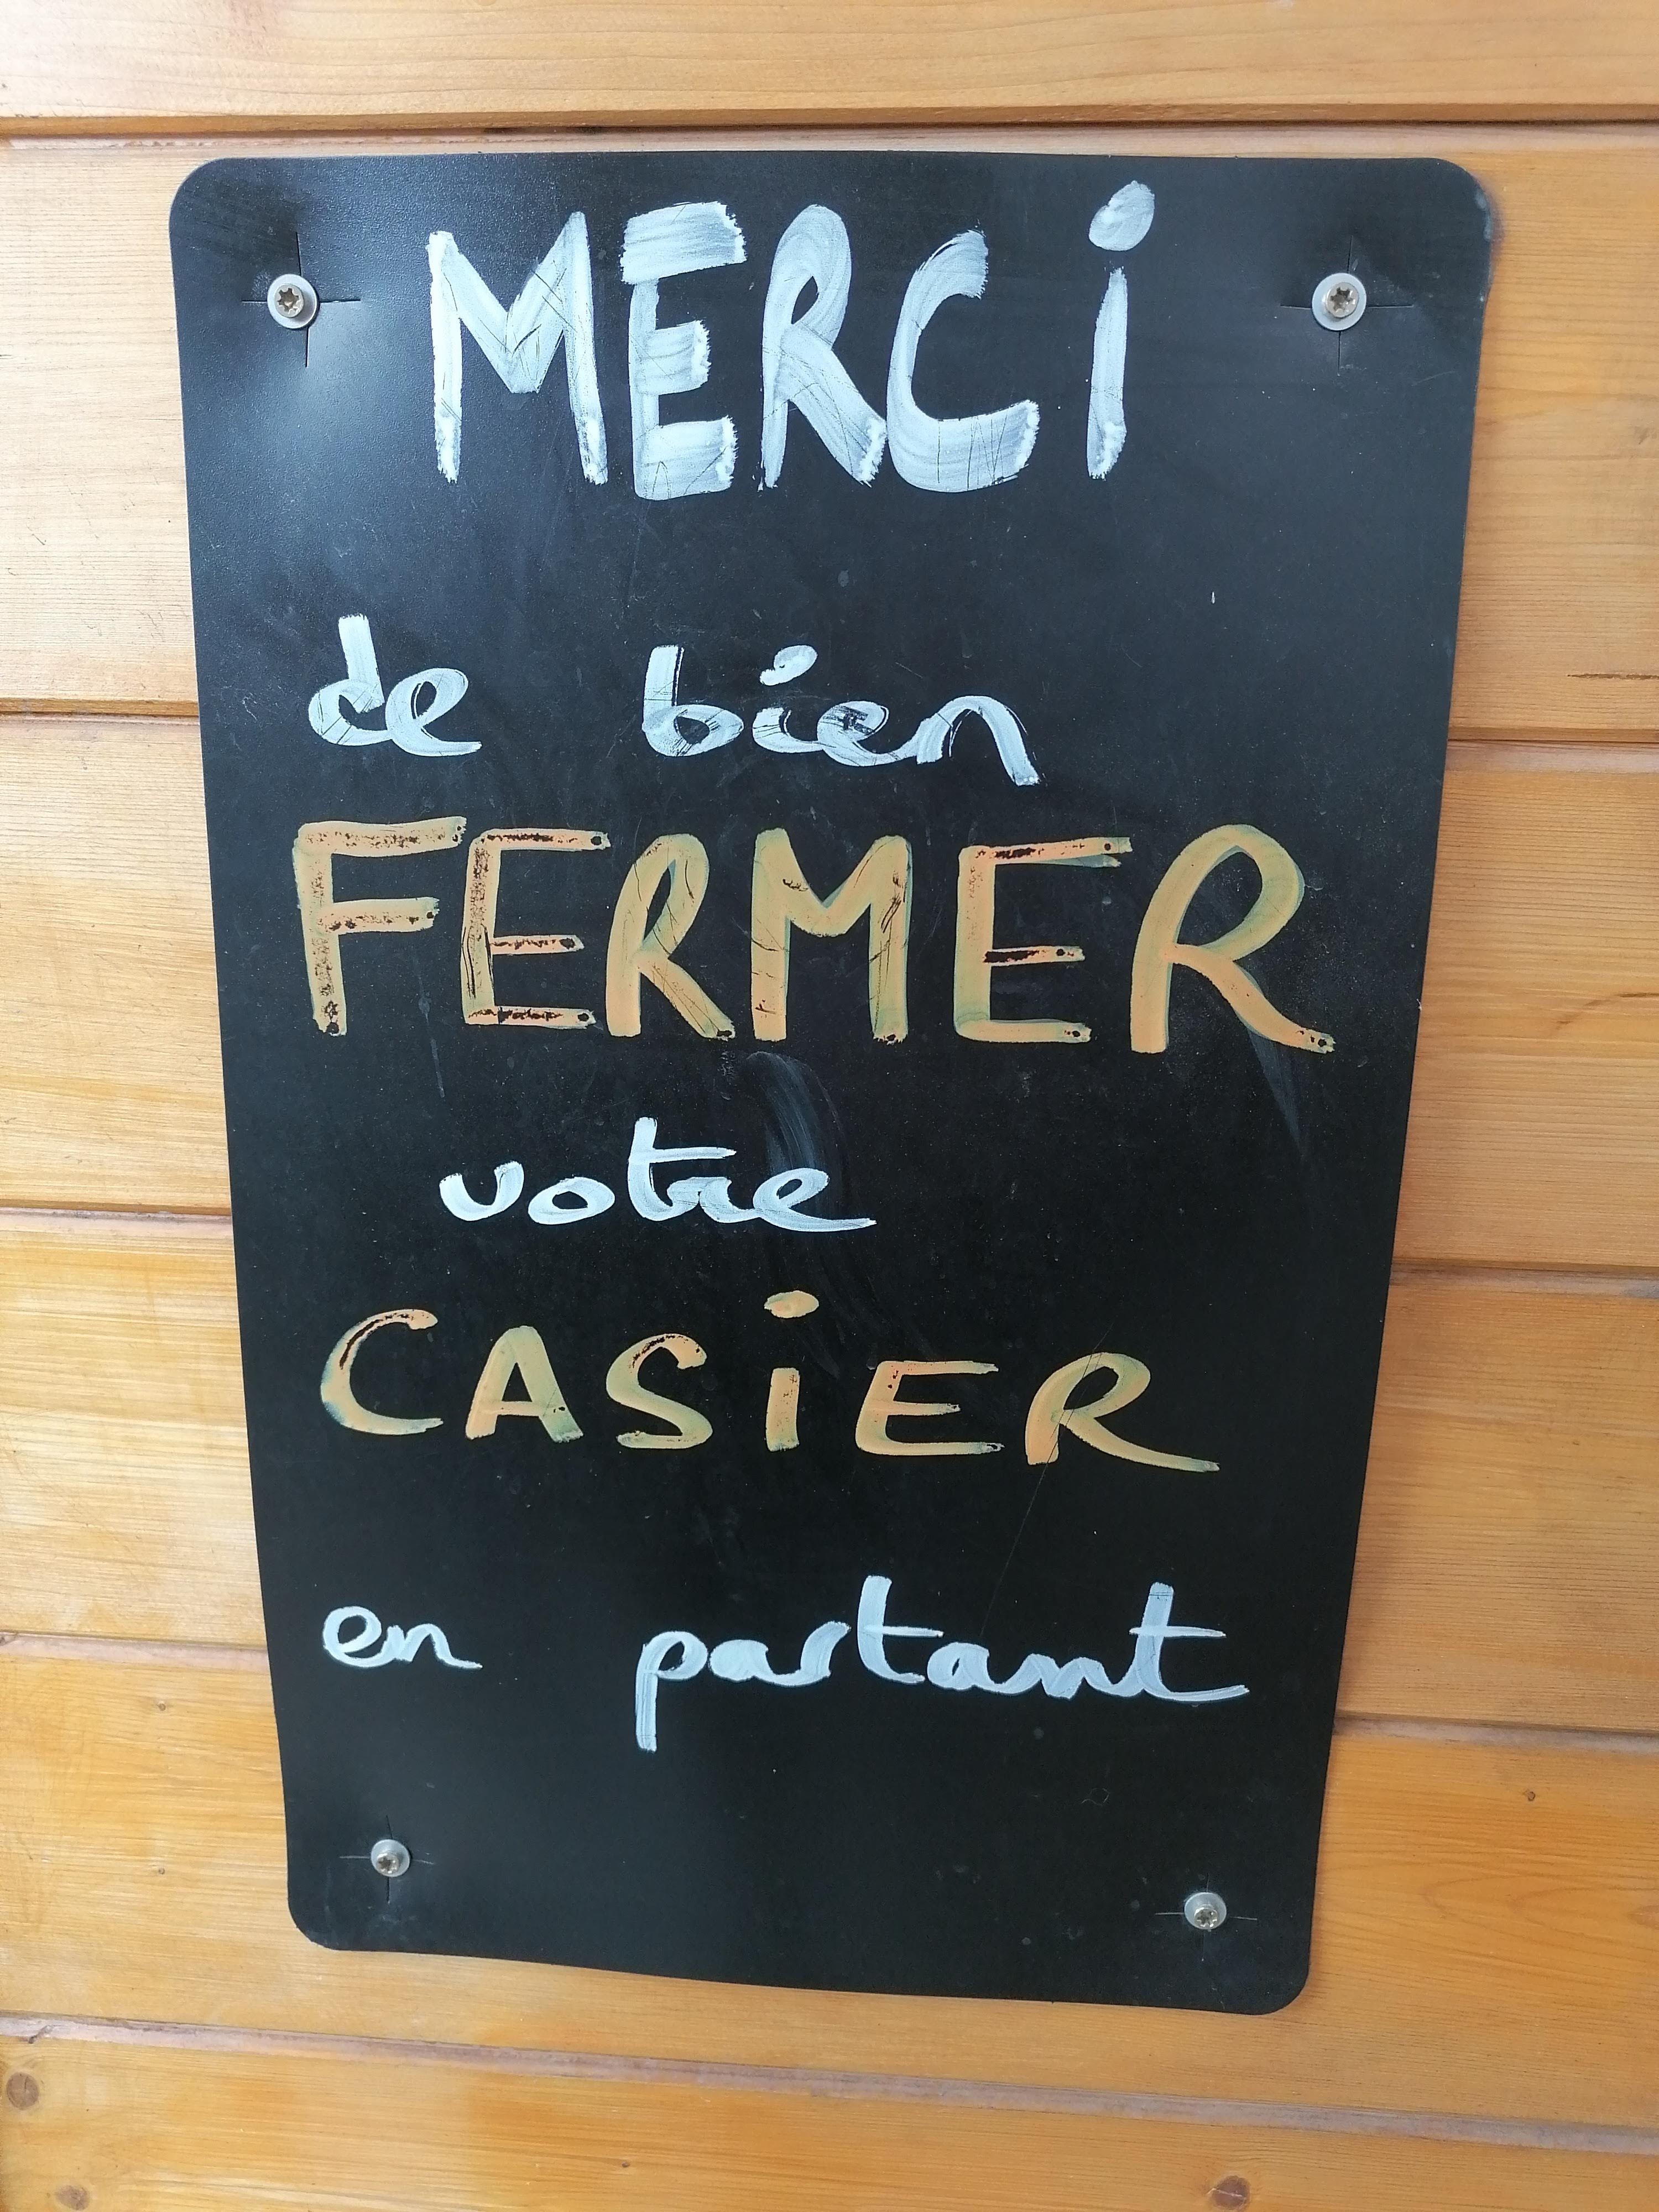 MERCi
de bien
FERMER
votre
CASiER
en partant